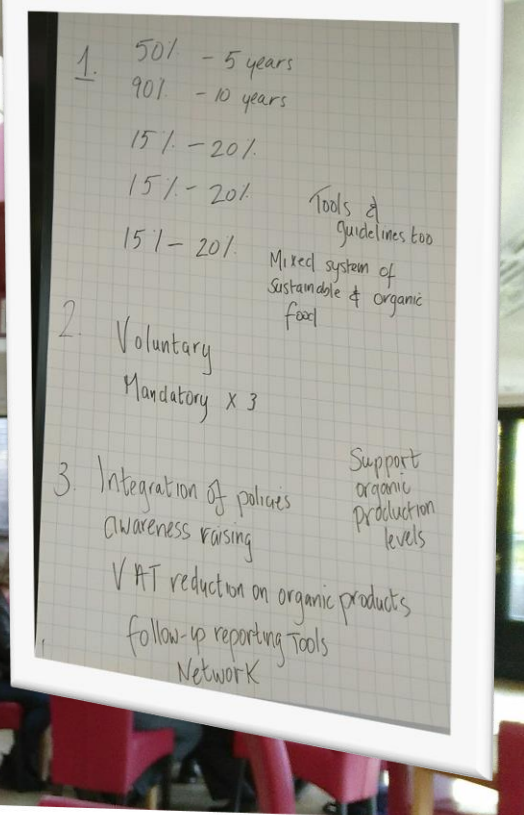 1. 50% - 5 years
90% - 10 years
15% - 20%
15% - 20%
Tools &
guidelines too
15% - 20%
Mixed system of
sustainable & organic
food
2. Voluntary
Mandatory x 3
3. Integration of policies
awareness raising
Support
organic
production
levels
VAT reduction on organic products
follow-up reporting Tools
Network